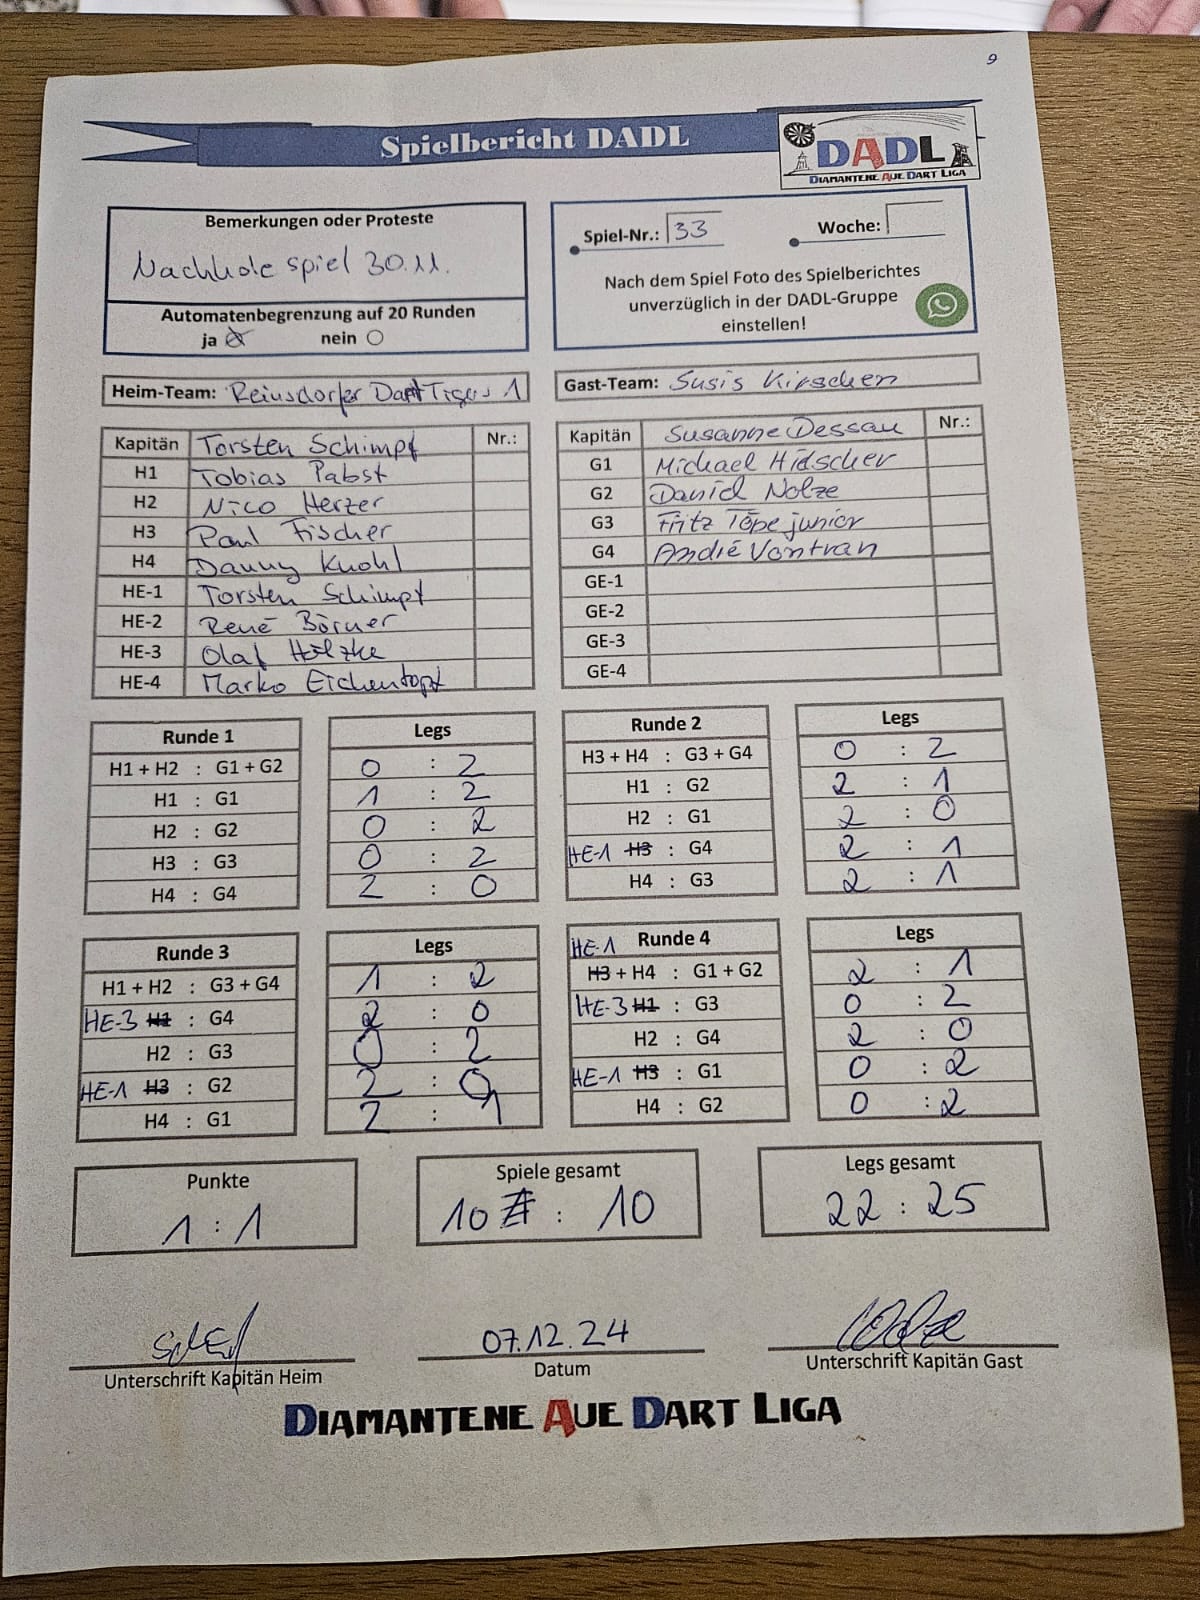 9
Spielbericht DADL
DADL
DIAMANTENE AUE DART LIGA
Bemerkungen oder Proteste
Nachhole spiel 30.11.
Automatenbegrenzung auf 20 Runden
ja nein
Spiel-Nr.: 33 Woche:
Nach dem Spiel Foto des Spielberichtes
unverzüglich in der DADL-Gruppe
einstellen!
Heim-Team: Reinsdorfer Dart Tigers 1
Gast-Team: Susis Kirschen
Kapitän Torsten Schimpf Nr.:
H1 Tobias Pabst
H2 Nico Herzer
H3 Paul Fischer
H4 Danny Knohl
HE-1 Torsten Schimpf
HE-2 René Börner
HE-3 Olaf
HE-4 Marko Eichentopf
Kapitän Susanne Dessau Nr.:
G1 Michael
G2 Daniel Nolze
G3 Fritz Töpe junior
G4 André Vontran
GE-1
GE-2
GE-3
GE-4
Runde 1 Legs
H1 + H2 : G1 + G2 0 : 2
H1 : G1 1 : 2
H2 : G2 0 : 2
H3 : G3 0 : 2
H4 : G4 2 : 0
Runde 2 Legs
H3 + H4 : G3 + G4 0 : 2
H1 : G2 2 : 1
H2 : G1 2 : 0
HE-1 H3 : G4 2 : 1
H4 : G3 2 : 1
Runde 3 Legs
H1 + H2 : G3 + G4 1 : 2
HE-3 H1 : G4 2 : 0
H2 : G3 0 : 2
HE-1 H3 : G2 2 : 0
H4 : G1 2 : 1
HE-1 Runde 4 Legs
H3 + H4 : G1 + G2 2 : 1
HE-3 H1 : G3 0 : 2
H2 : G4 2 : 0
HE-1 H3 : G1 0 : 2
H4 : G2 0 : 2
Punkte
1 : 1
Spiele gesamt
10 : 10
Legs gesamt
22 : 25
07.12.24
Unterschrift Kapitän Heim
Datum
Unterschrift Kapitän Gast
DIAMANTENE AUE DART LIGA